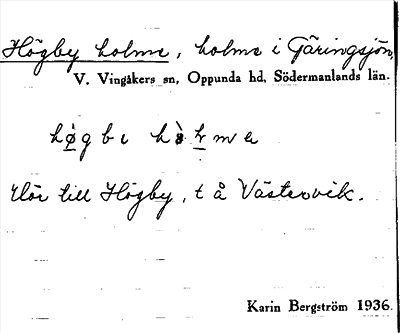 Högby holme, holme i Gäringsjön,
V. Vingåkers sn, Oppunda hd, Södermanlands län.
högbi
Hör till Högby, t å Västervik.
Karin Bergström 1936.